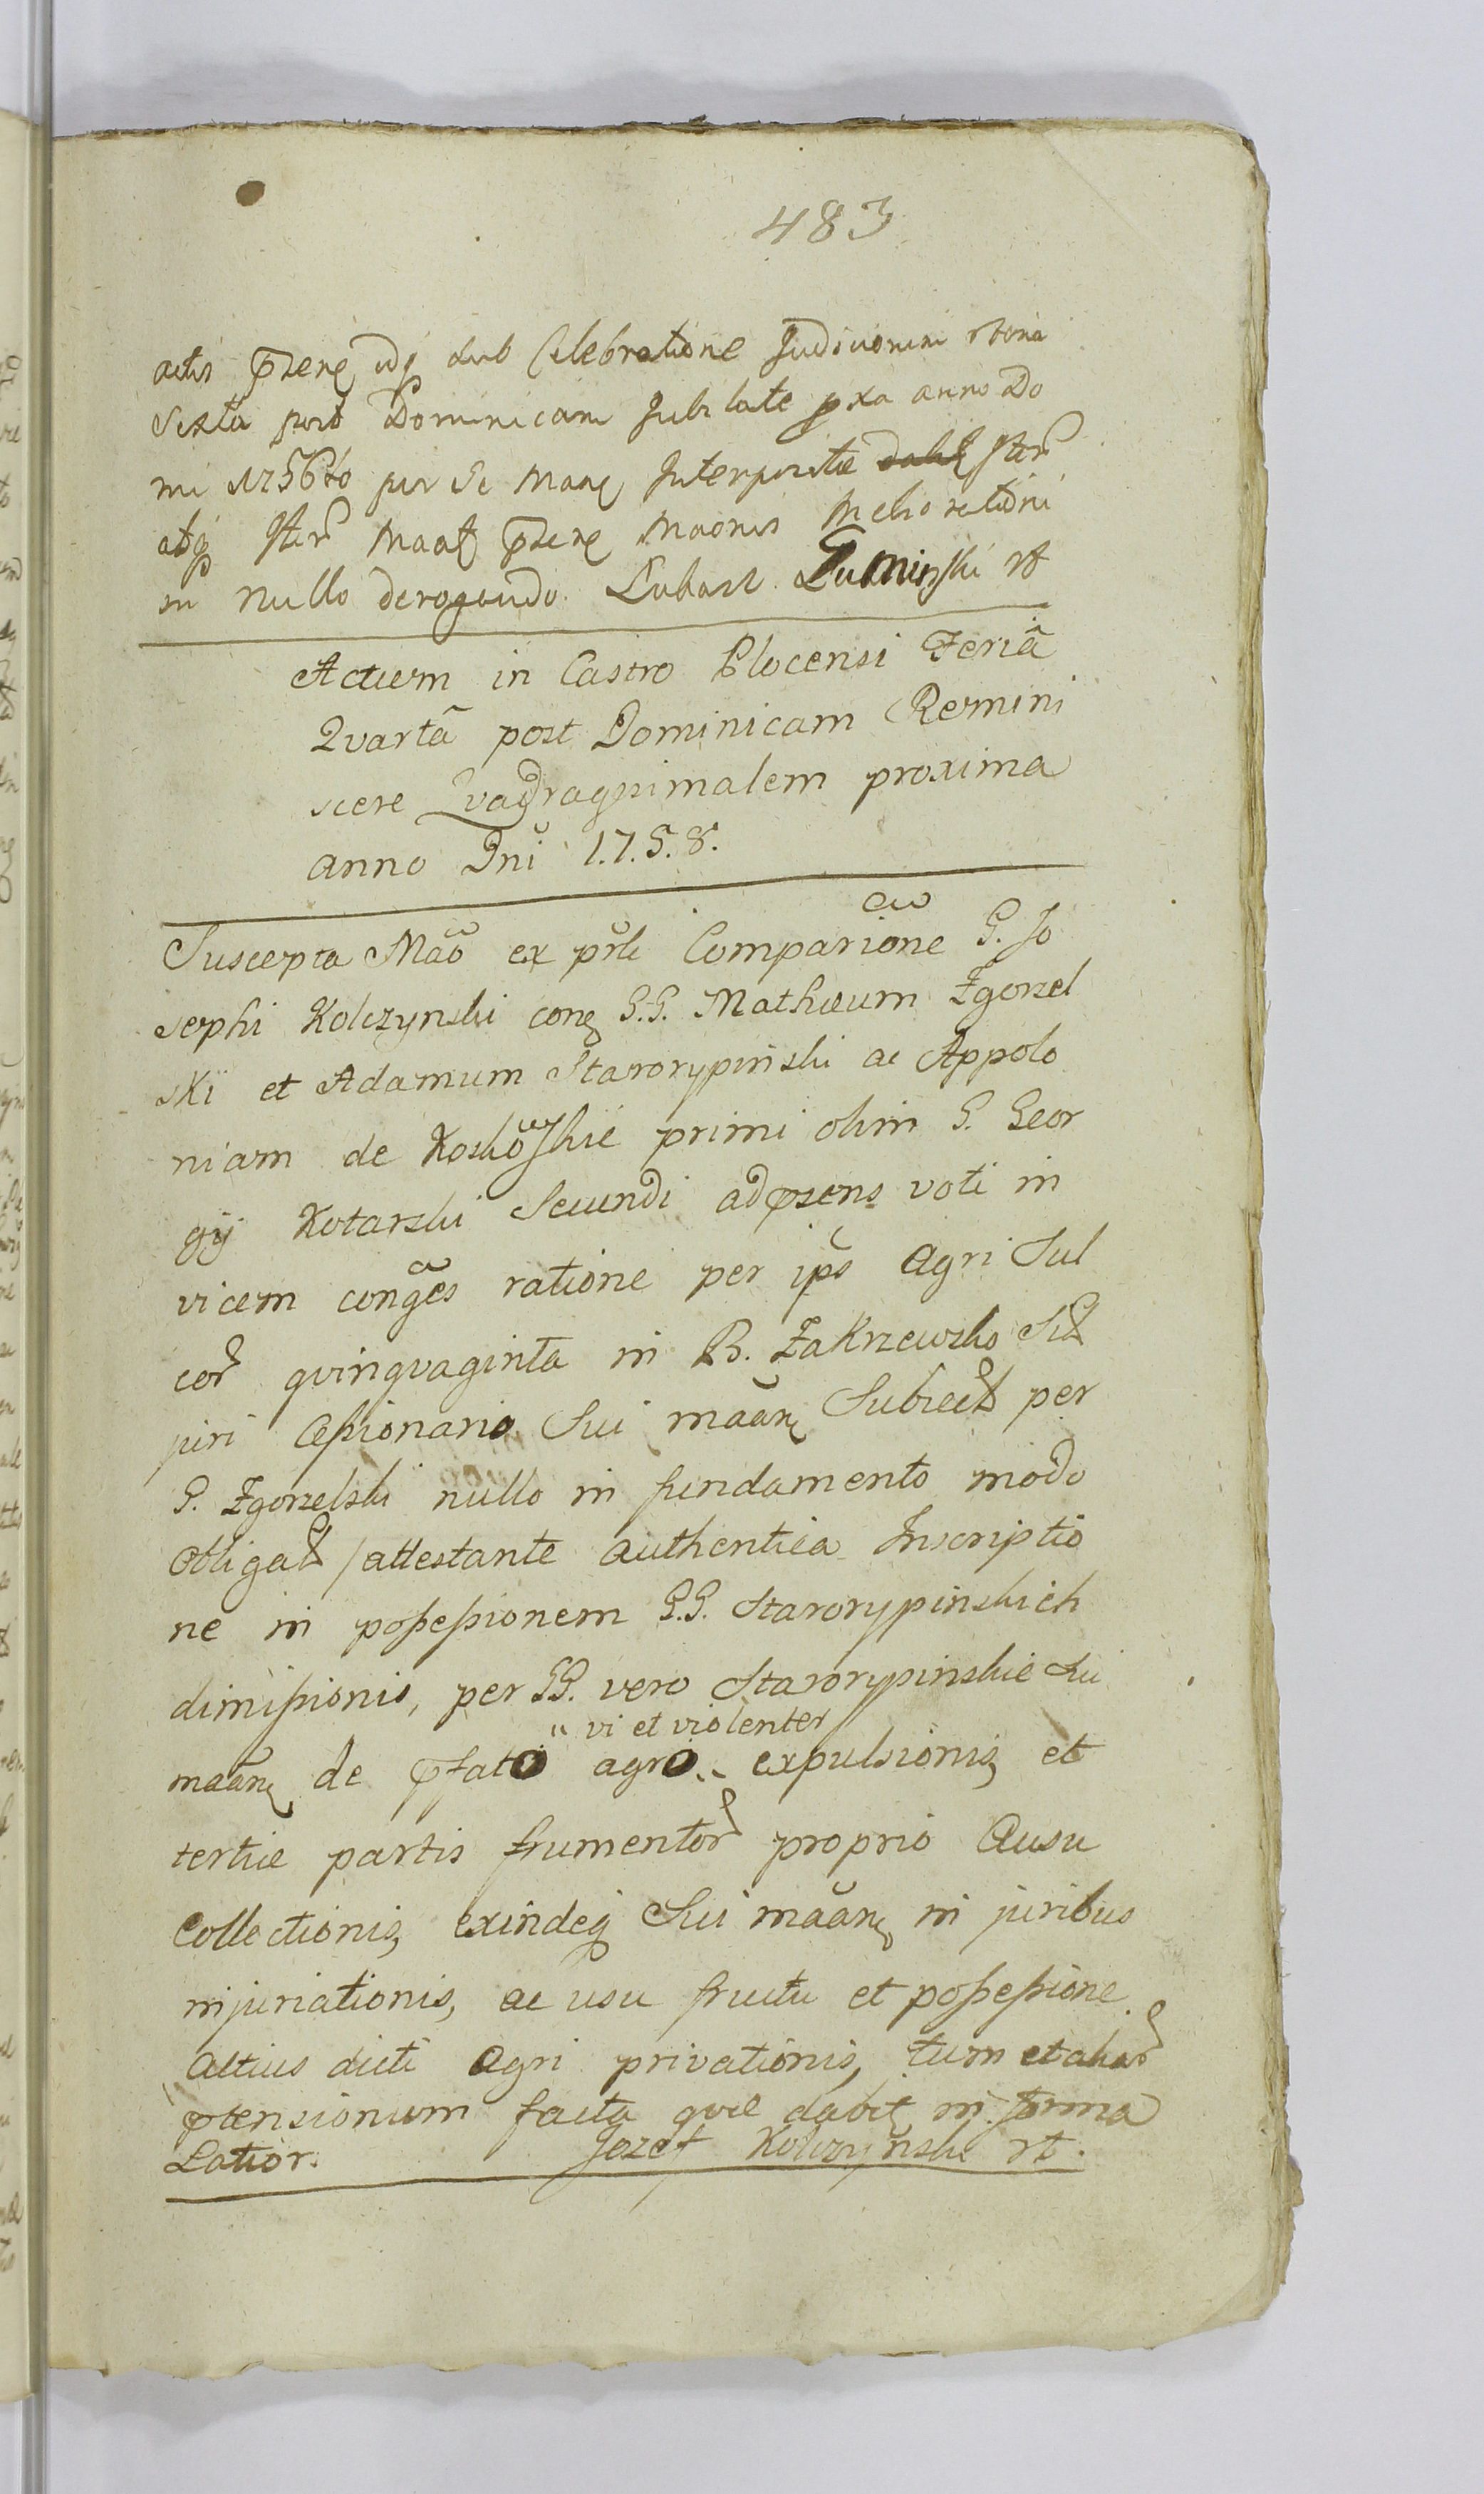 483
actis pzenę idq sub Celebratione Judiciorum
Sexta post Dominicam Jubilate pxa anno Do
mi 1756to per Se Manę Interpositæ
atq Maaę pzenę Maonis Meliorationi
in nullo derogando. Łubart
Actum in Castro Plocensi Feriã
Qvartã post Dominicam Remini
scere Qvadragesimalem proxima
anno Dni 1.7.5.8.
Suscepta Mao ex prli Comparione G. Jo
sephi Kolczynski conę G.G. Mathæum Zgorzel
ski et Adamum Starorypinski ac Appolo
niam de primi olim G. Geor
gij Kotarski Secundi adpzens voti in
vicem conges ratione per ips agri Sul
cor qvinqvaginta in B. Zakrzewsko Sit
juri Cessionario Sui maanę Subiect per
G. Zgorzelski nullo in fundamento modo
obligat /attestante authentica Inscriptio
ne in possessionem G.G. Starorypinskich
dimissionis, per GG. vero Starorypinskie Sui
" vi et violenter
maanę de pfato agro expulsionis, et
tertiæ partis frumentor proprio Ausu
Collectionis, exindeq Sui maanę in juribus
injuriationis, ac usu fructu et possessione
altius dicti Agri privationis, tum et alias
ptensionum facta qvæ dabit in forma
Latior. Jozef Kolczynski